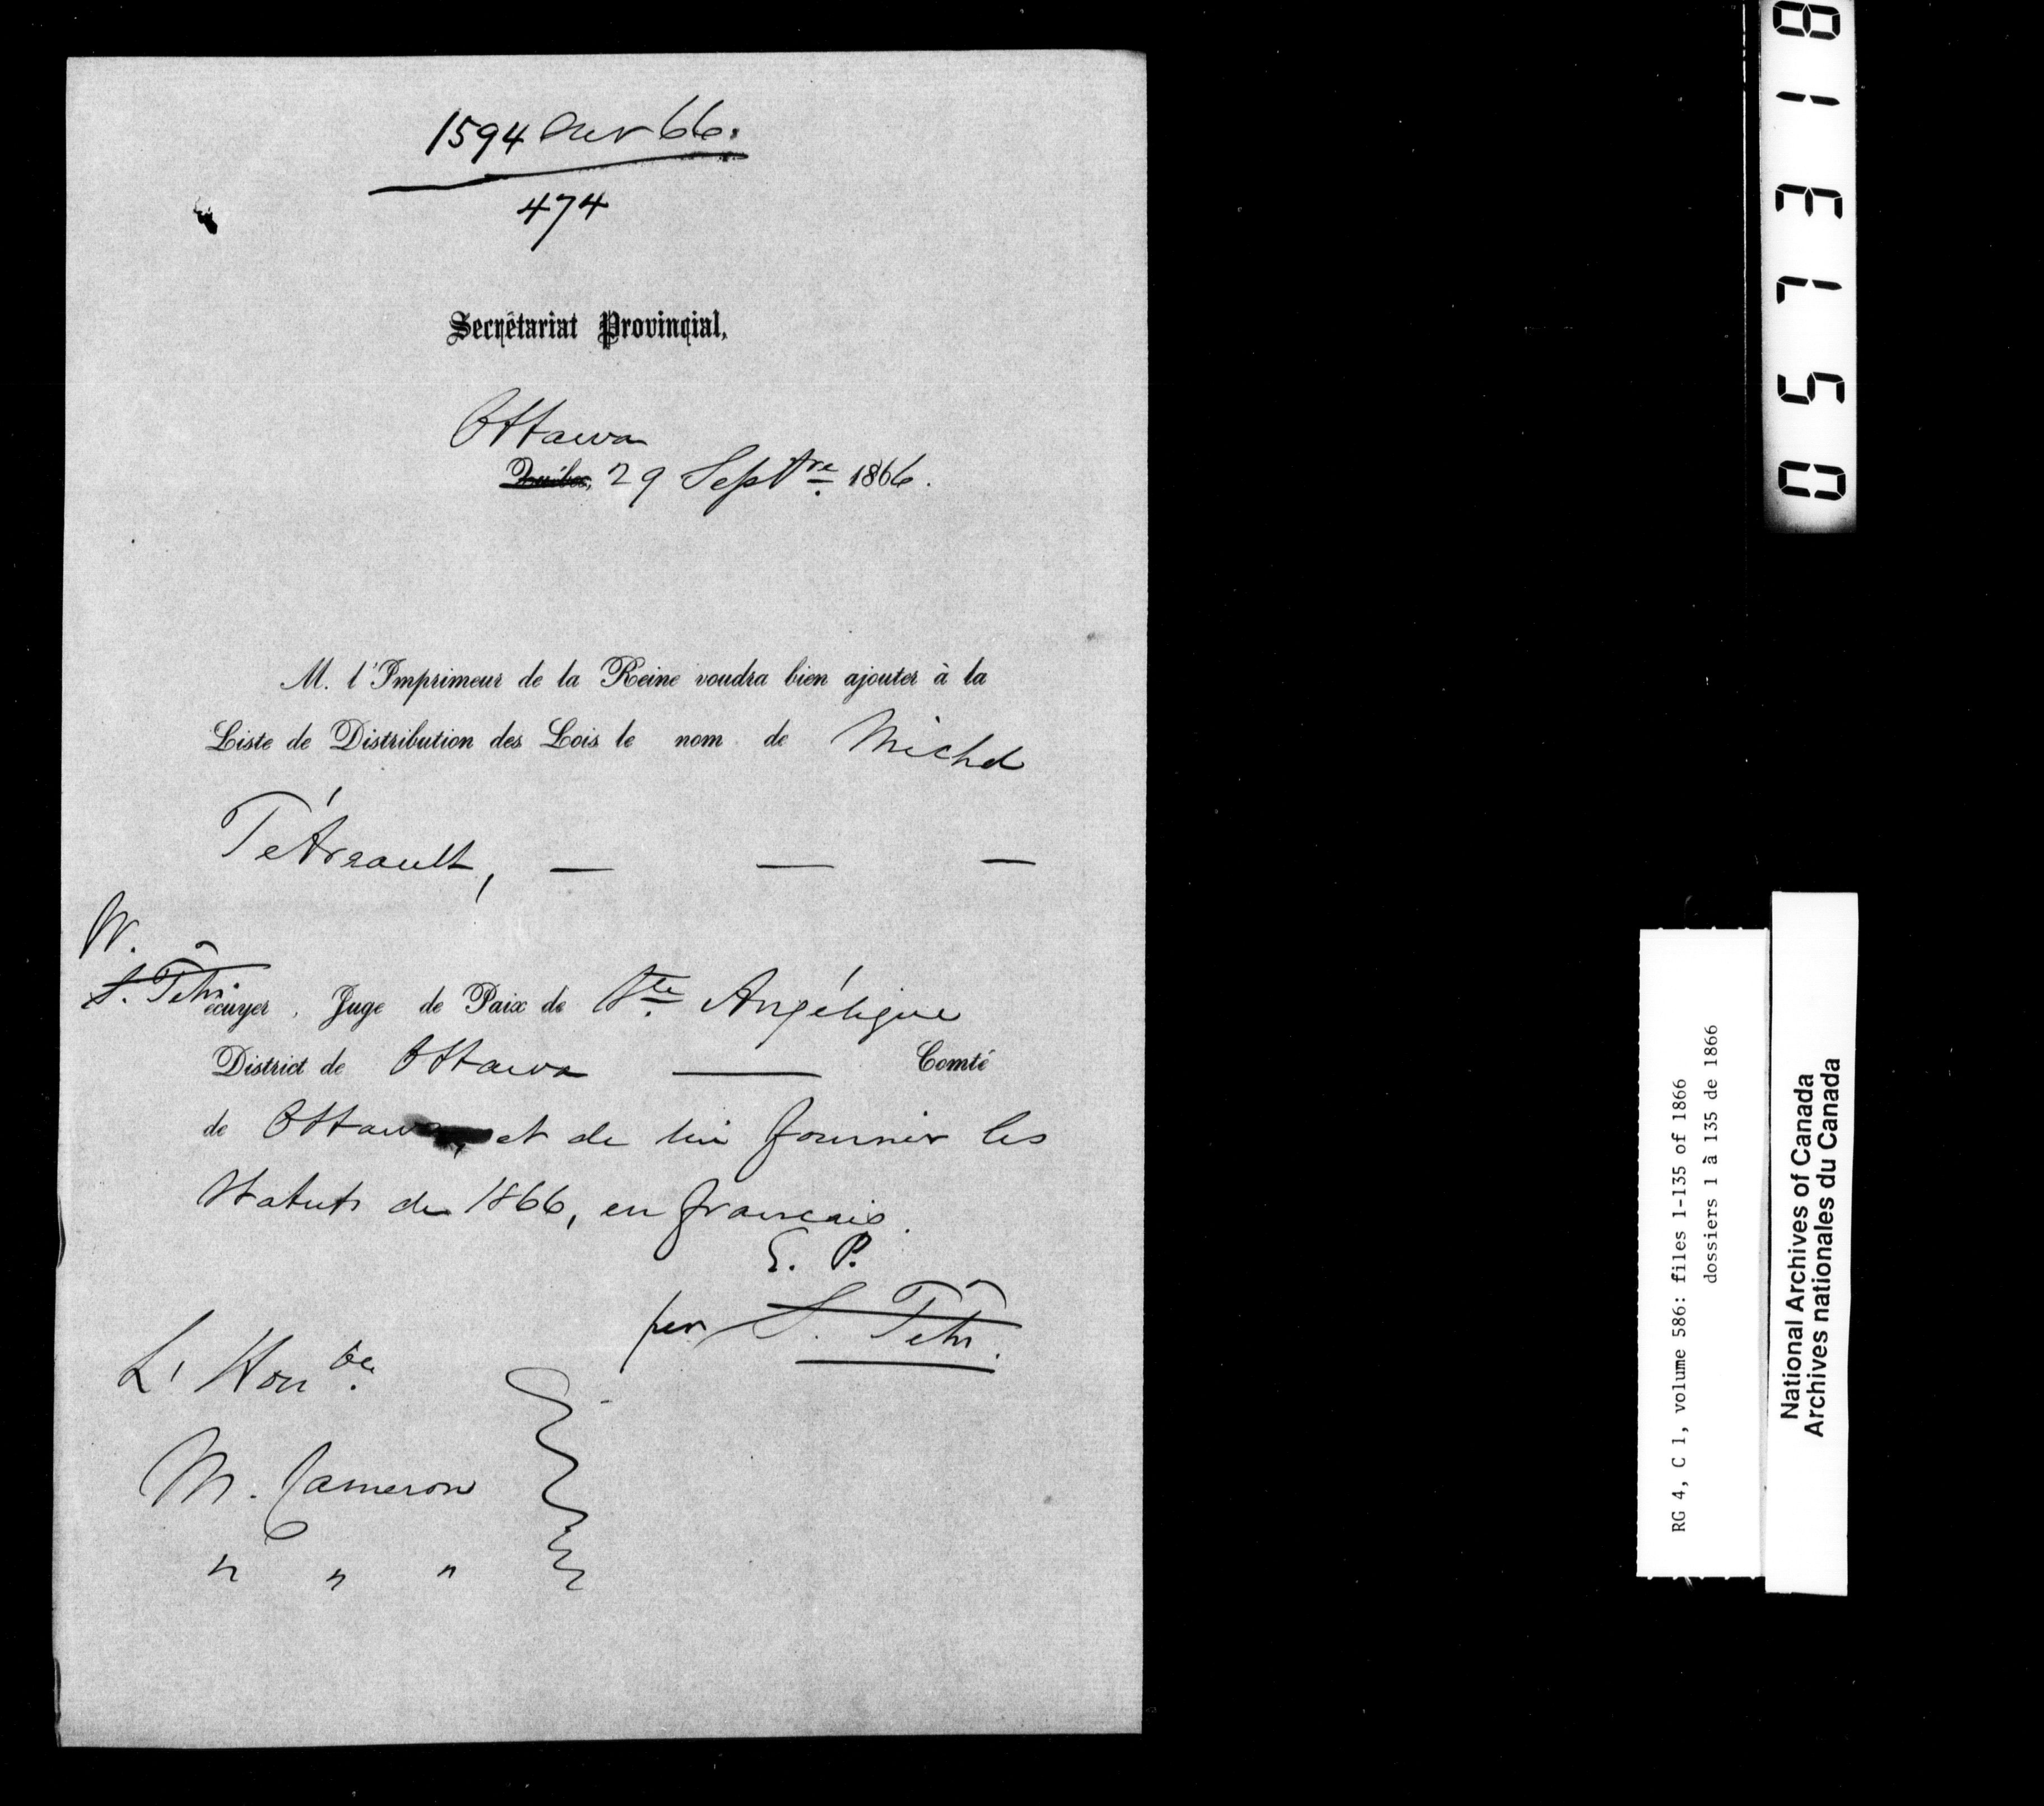 1594 66.
474
Secrétariat Provincial,
Ottawa
Québec, 29 Septre 1866.
M. l'Imprimeur de la Reine voudra bien ajouter à la
Liste de Distribution des Lois le nom de Michel
Tétreault, — — —
écuyer, Juge de Paix de Ste Angélique
District de Ottawa — Comté
de Ottawa, et de lui fournir les
Statuts de 1866, en français.
E. P.
per
L'Honble
M. Cameron
" " "
05731 8
RG 4, C 1, volume 586: files 1-135 of 1866
dossiers 1 à 135 de 1866
National Archives of Canada
Archives nationales du Canada